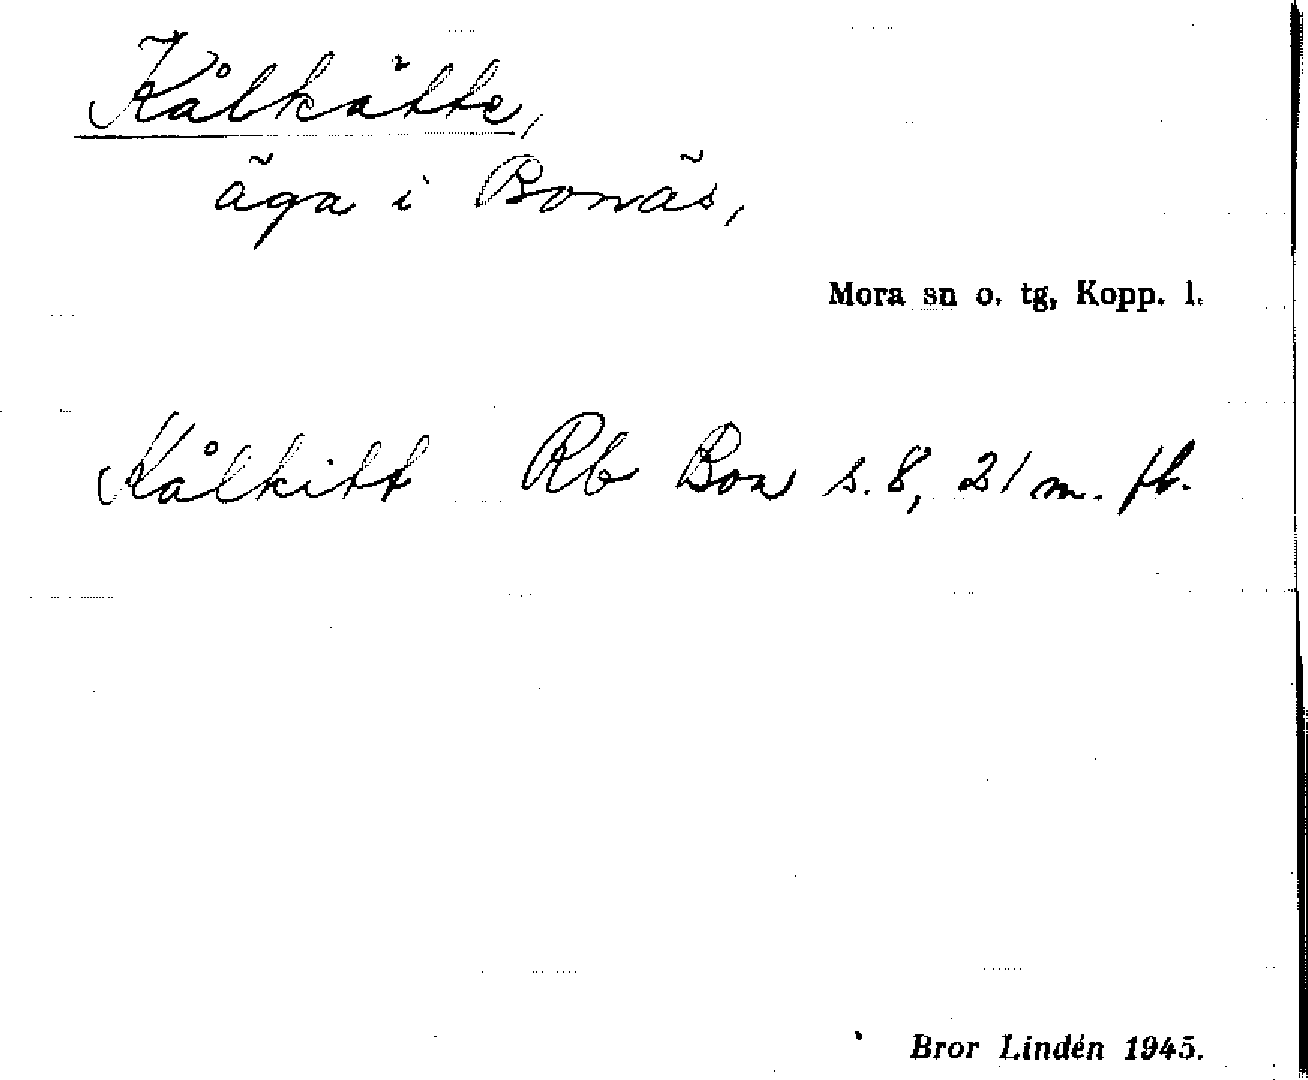 Kålkätte,
äga i Bonäs,
Mora sn o. tg, Kopp. l.
Kålkitt Rb Bon s. 8, 21 m. fl.
Bror Lindén 1945.